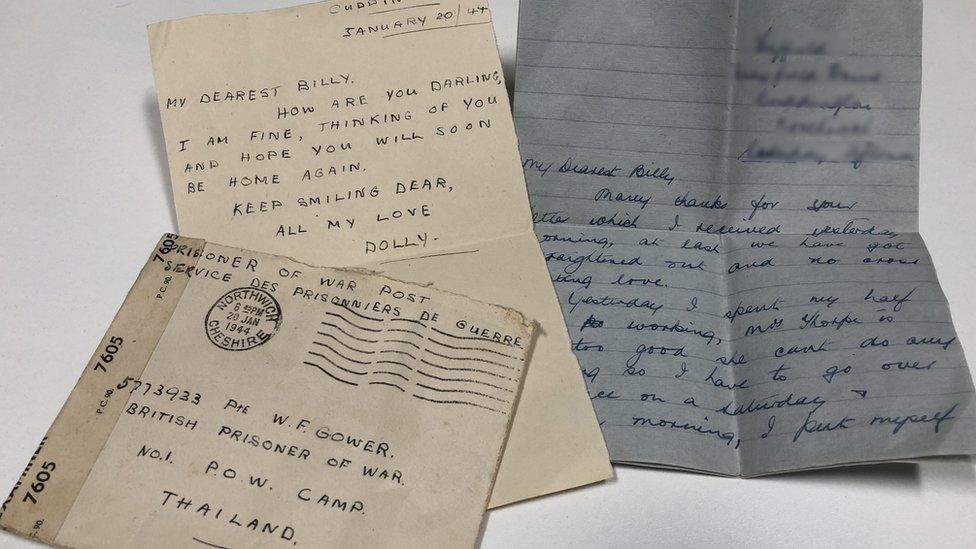 JANUARY 20/44
MY DEAREST BILLY.
HOW ARE YOU DARLING,
I AM FINE, THINKING OF YOU
AND HOPE YOU WILL SOON
BE HOME AGAIN.
KEEP SMILING DEAR,
ALL MY LOVE
DOLLY.
My Dearest Billy
Many thanks for your
which I received yesterday
morning, at last we have got
out and no cross
love.
Yesterday I spent my half
working, Mrs Thorpe is
too good she cant do any
so I have to go over
on a Saturday
morning, I put myself
PRISONER OF WAR POST
SERVICE DES PRISONNIERS DE GUERRE.
NORTHWICH
6 45PM
20 JAN
1944
CHESHIRE
5773933 Pte W.F. GOWER.
BRITISH PRISONER OF WAR.
NO.1. P.O.W. CAMP.
THAILAND.
7605
P.C. 90.
7605
P.C. 90.
7605
P.C. 90.